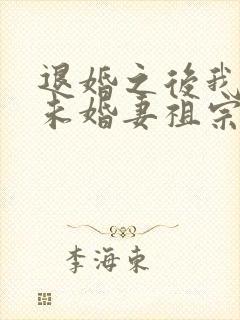 退婚之後我
未婚妻祖宗
李海東